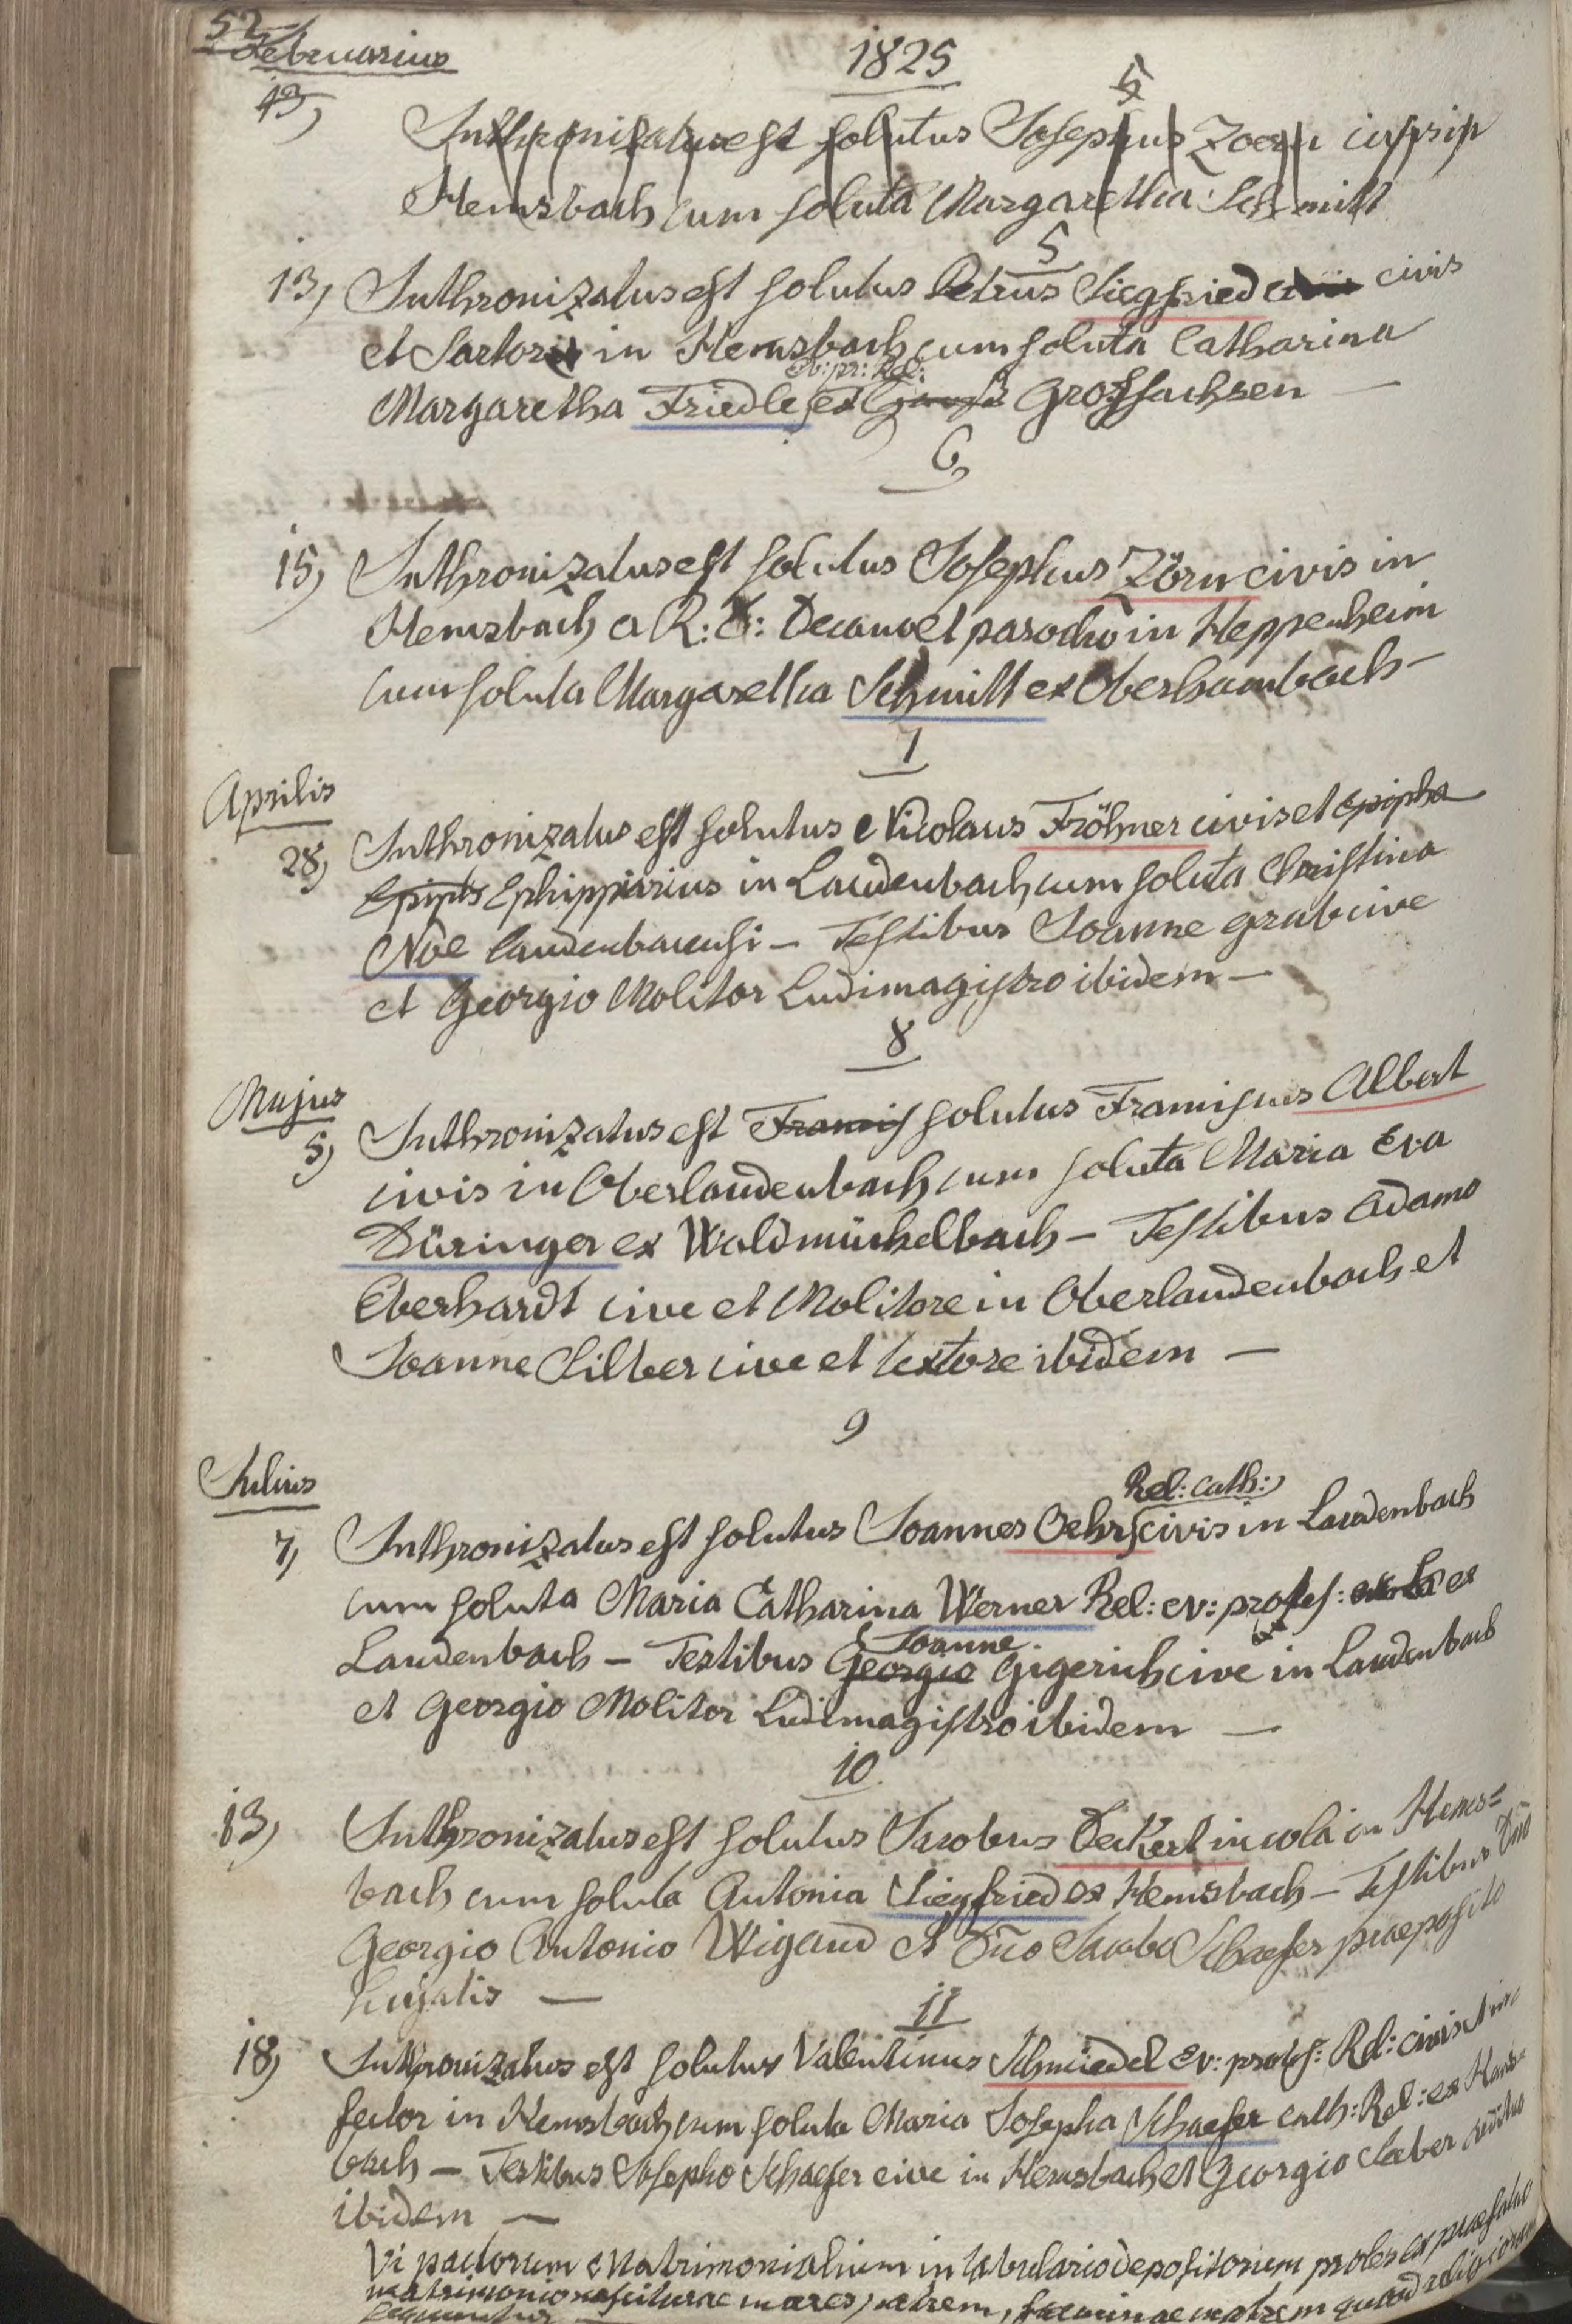 52
Februarius
1825
5
13) Inthronizatus est solutus Josephus Zoern
Hemsbach cum soluta Margaretha Schmitt
5
13) Inthronizatus est solutus Petrus Siegfried civis
et Sartor in Hemsbach cum soluta Catharina
Ev: pr: Rel:
Margaretha Friedle ex Grossachsen —
6
15) Inthronizatus est solutus Josephus Zörn civis in
Hemsbach a R: D: Decano et parocho in Heppenheim
cum soluta Margaretha Schmitt ex Oberhambach —
7
Aprilis
28) Inthronizatus est solutus Nicolaus Fröhner civis et Epipha
Ephippiarius in Laudenbach cum soluta Christina
Noe Laudenbacensi — Testibus Joanne Grab cive
et Georgio Molitor Ludimagistro ibidem —
8
Majus
5) Inthronizatus est Francis solutus Franciscus Albert
civis in Oberlaudenbach cum soluta Maria Eva
Düringer ex Waldmichelbach — Testibus Adamo
Eberhardt cive et Molitore in Oberlaudenbach et
Joanne Silber cive et textore ibidem —
9
Julius
Rel: cath:
7) Inthronizatus est solutus Joannes Oehrs civis in Laudenbach
cum soluta Maria Catharina Werner Rel: ev: protes: ex
Joanne
Laudenbach — Testibus Georgio Gigerich cive in Laudenbach
et Georgio Molitor Ludimagistro ibidem —
10
13) Inthronizatus est solutus Jacobus Deckert incola in Hems=
bach cum soluta Antonia Siegfried ex Hemsbach — Testibus Dno
Georgio Antonio Wigand et Dno Jacobo Schaefer praeposito
hujatis —
11
18) Inthronizatus est solutus Valentinus Schmiedel Ev: protes: Rel: civis et
fector in Hemsbach cum soluta Maria Josepha Schaefer cath: Rel: ex Hems=
bach — Testibus Josepho Schaefer cive in Hemsbach et Georgio Saeber aedituo
ibidem —
Vi pactorum Matrimonialium in tabulario depositorum proles ex praefato
matrimonio nasciturae mares patrem, faeminae matrem quoad religionem
sequuntur —